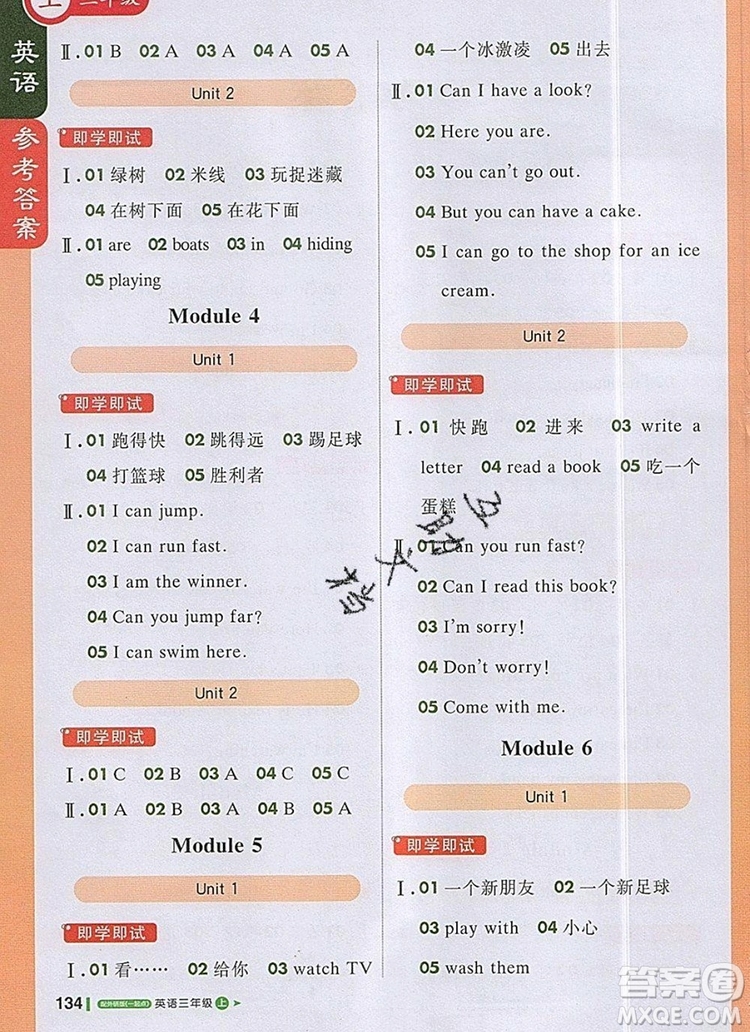 上 三年级
英语
参考答案
Ⅱ.01 B 02 A 03 A 04 A 05 A
Unit 2
即学即试
Ⅰ.01 绿树 02 米线 03 玩捉迷藏
04 在树下面 05 在花下面
Ⅱ.01 are 02 boats 03 in 04 hiding
05 playing
Module 4
Unit 1
即学即试
Ⅰ.01 跑得快 02 跳得远 03 踢足球
04 打篮球 05 胜利者
Ⅱ.01 I can jump.
02 I can run fast.
03 I am the winner.
04 Can you jump far?
05 I can swim here.
Unit 2
即学即试
Ⅰ.01 C 02 B 03 A 04 C 05 B
Ⅱ.01 A 02 B 03 A 04 B 05 A
Module 5
Unit 1
即学即试
Ⅰ.01 看…… 02 给你 03 watch TV
134 配外研版(一起点) 英语三年级 上
04 一个冰激凌 05 出去
Ⅱ.01 Can I have a look?
02 Here you are.
03 You can't go out.
04 But you can have a cake.
05 I can go to the shop for an ice
cream.
Unit 2
即学即试
Ⅰ.01 快跑 02 进来 03 write a
letter 04 read a book 05 吃一个
蛋糕
Ⅱ.01 Can you run fast?
02 Can I read this book?
03 I'm sorry!
04 Don't worry!
05 Come with me.
Module 6
Unit 1
即学即试
Ⅰ.01 一个新朋友 02 一个新足球
03 play with 04 小心
05 wash them
答案圈
MXQE.COM